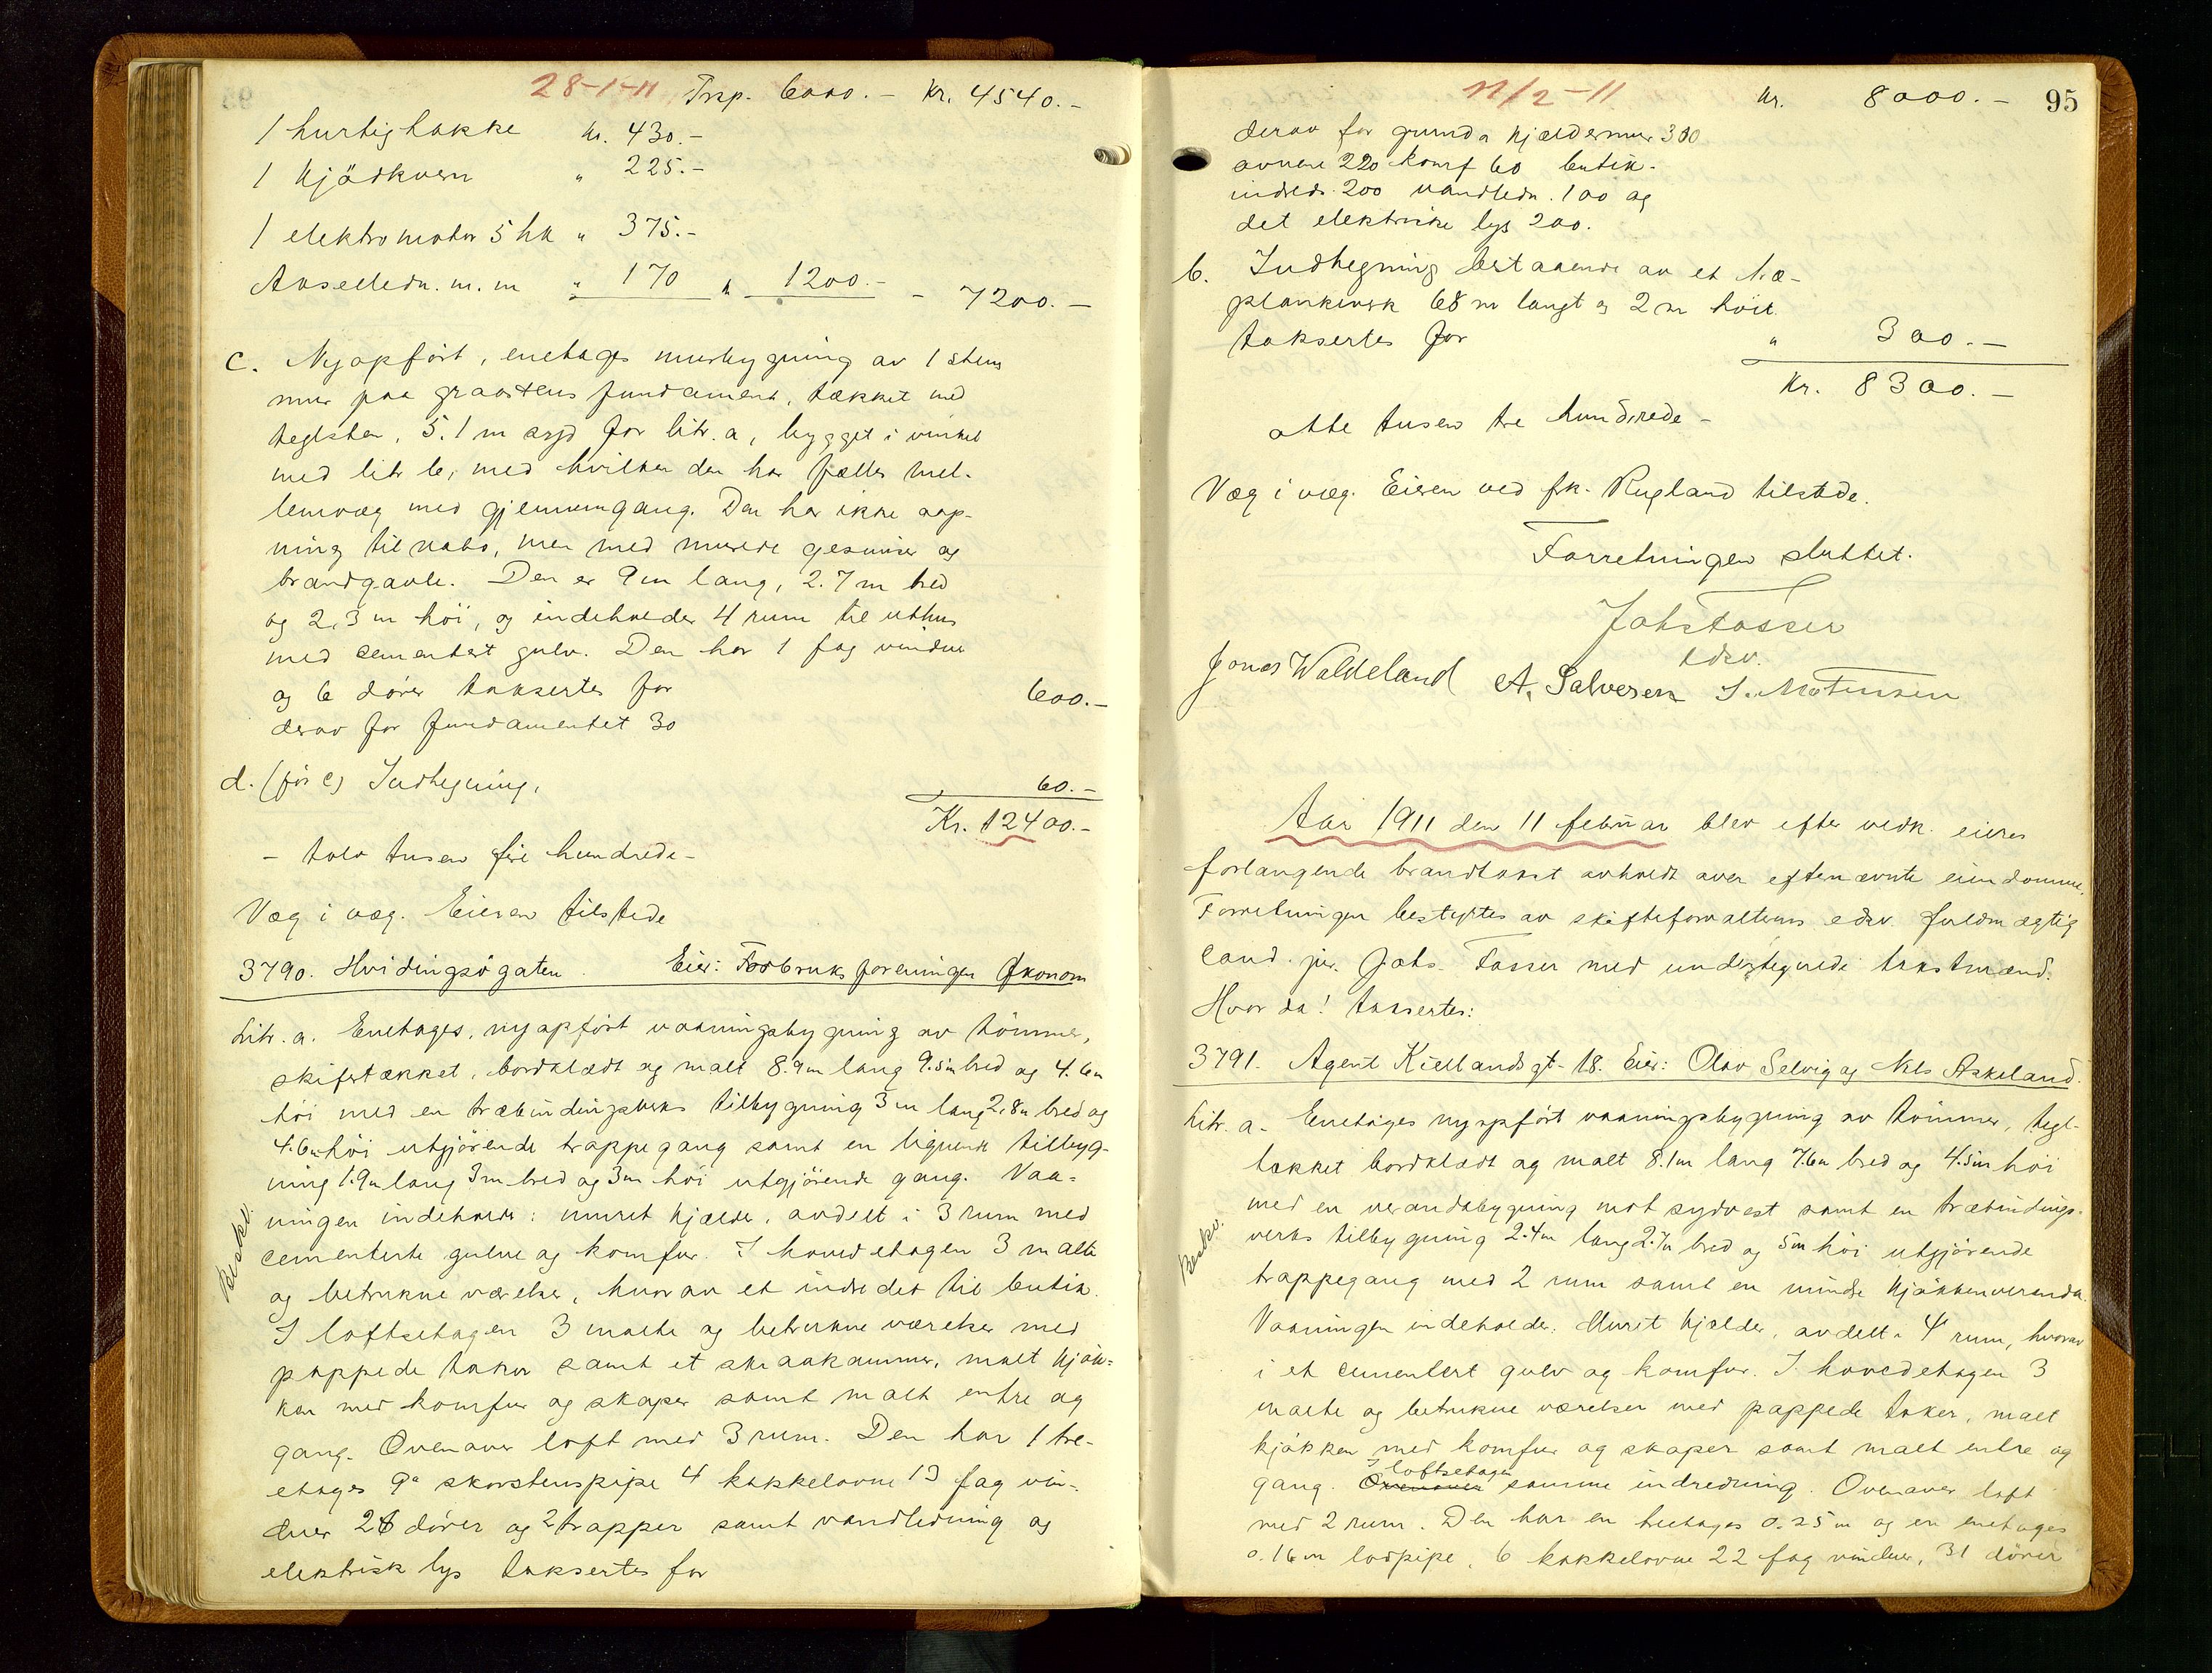 28-1-11 Trsp. 6000.- Kr. 4540.-
1 hurtighakke Kr. 430.-
1 kjödkvern " 225.-
1 elektromotor 5 hk " 375.-
Akselledn. m.m " 170 " 1200.- - 7200.-
c. Nyopfört, enetages murbygning av 1 stens
mur paa graastens fundament, tækket med
teglsten, 5.1 m syd for litr. a, bygget i vinkel
med litr b, med hvilken den har fælles mel-
lemvæg med gjennemgang. Den har ikke aap-
ning til nabo, men med murede gesimser og
brandgavle. Den er 9 m lang, 2.7 m bred
og 2,3 m höi, og indeholder 4 rum til uthus
med cementert gulv. Den har 1 fag vindue
og 6 dörer taksertes for 600.-
derav for fundamentet 30
d. (för c) Indhegning, 60.-
Kr. 12400.-
- tolv tusen fire hundrede -
Væg i væg. Eieren tilstede
3790. Hvidingsögaten. Eier: Forbruksforeningen Økonom
Litr. a. Enetages, nyopfört vaaningsbygning av tömmer,
skifertækket, bordklædt og malt 8.9m lang 9.5m bred og 4.6m
höi med en træbindingsverks tilbygning 3m lang 2,8m bred og
4.6m höi utgjörende trappegang samt en lignende tilbyg-
ning 1.9m lang 3m bred og 3m höi utgjörende gang. Vaa-
ningen indeholder: muret kjælder, avdelt i 3 rum med
cementerte gulve og komfur. I hovedetagen 3 malte
og betrukne værelser, hvorav et indredet til butik.
I loftsetagen 3 malte og betrukne værelser med
pappede taker samt et skraakammer, malt kjök-
ken med komfur og skaper samt malt entre og
gang. Ovenover loft med 3 rum. Den har 1 tre-
etages 9" skorstenspipe 4 kakkelovne 13 fag vin-
duer 26 dörer og 2 trapper samt vandledning og
elektrisk lys taksertes for
Beskv.
11/2-11 Kr. 8000.- 95
derav for grund & kjældermur 300
ovnene 220 komf 60 butik-
indredn. 200 vandledn. 100 og
det elektriske lys 200.
b. Indhegning bestaaende av et træ-
plankeverk 68 m langt og 2 m höit
taksertes for " 300.-
Kr. 8300.-
otte tusen tre hundrede -
Væg i væg. Eieren ved frk. Rugland tilstede.
Forretningen sluttet.
Johs Fasser
edsv.
Jonas Waldeland A. Salvesen S. Mortensen
Aar 1911 den 11 februar blev efter vedk. eieres
forlangende brandtakst avholdt over efternævnte eiendomme.
Forretningen bestyrtes av skifteforvalterens edsv. fuldmægtig
cand. jur. Johs. Fasser med undertegnede takstmænd.
Hvor da! taksertes:
3791. Agent Kiellands gt. 18. Eier: Olav Selvig og Nils Askeland.
Litr. a. Enetages nyopfört vaaningsbygning av tömmer, tegl-
tækket bordklædt og malt 8.1m lang 7.6m bred og 4.5m höi
med en verandabygning mot sydvest samt en træbindings-
verks tilbygning 2.4m lang 2.7m bred og 5m höi utgjörende
trappegang med 2 rum samt en mindre kjökkenveranda.
Vaaningen indeholder: Muret kjælder, avdelt i 4 rum, hvorav
i et cementert gulv og komfur. I hovedetagen 3
malte og betrukne værelser med pappede taker, malt
kjökken med komfur og skaper samt malt entre og
gang. Ovenover I loftsetagen samme indredning. Ovenover loft
med 2 rum. Den har en treetages 0.25 m og en enetages
0.16 m lodpipe, 6 kakkelovne 22 fag vinduer, 31 dörer
Beskv.